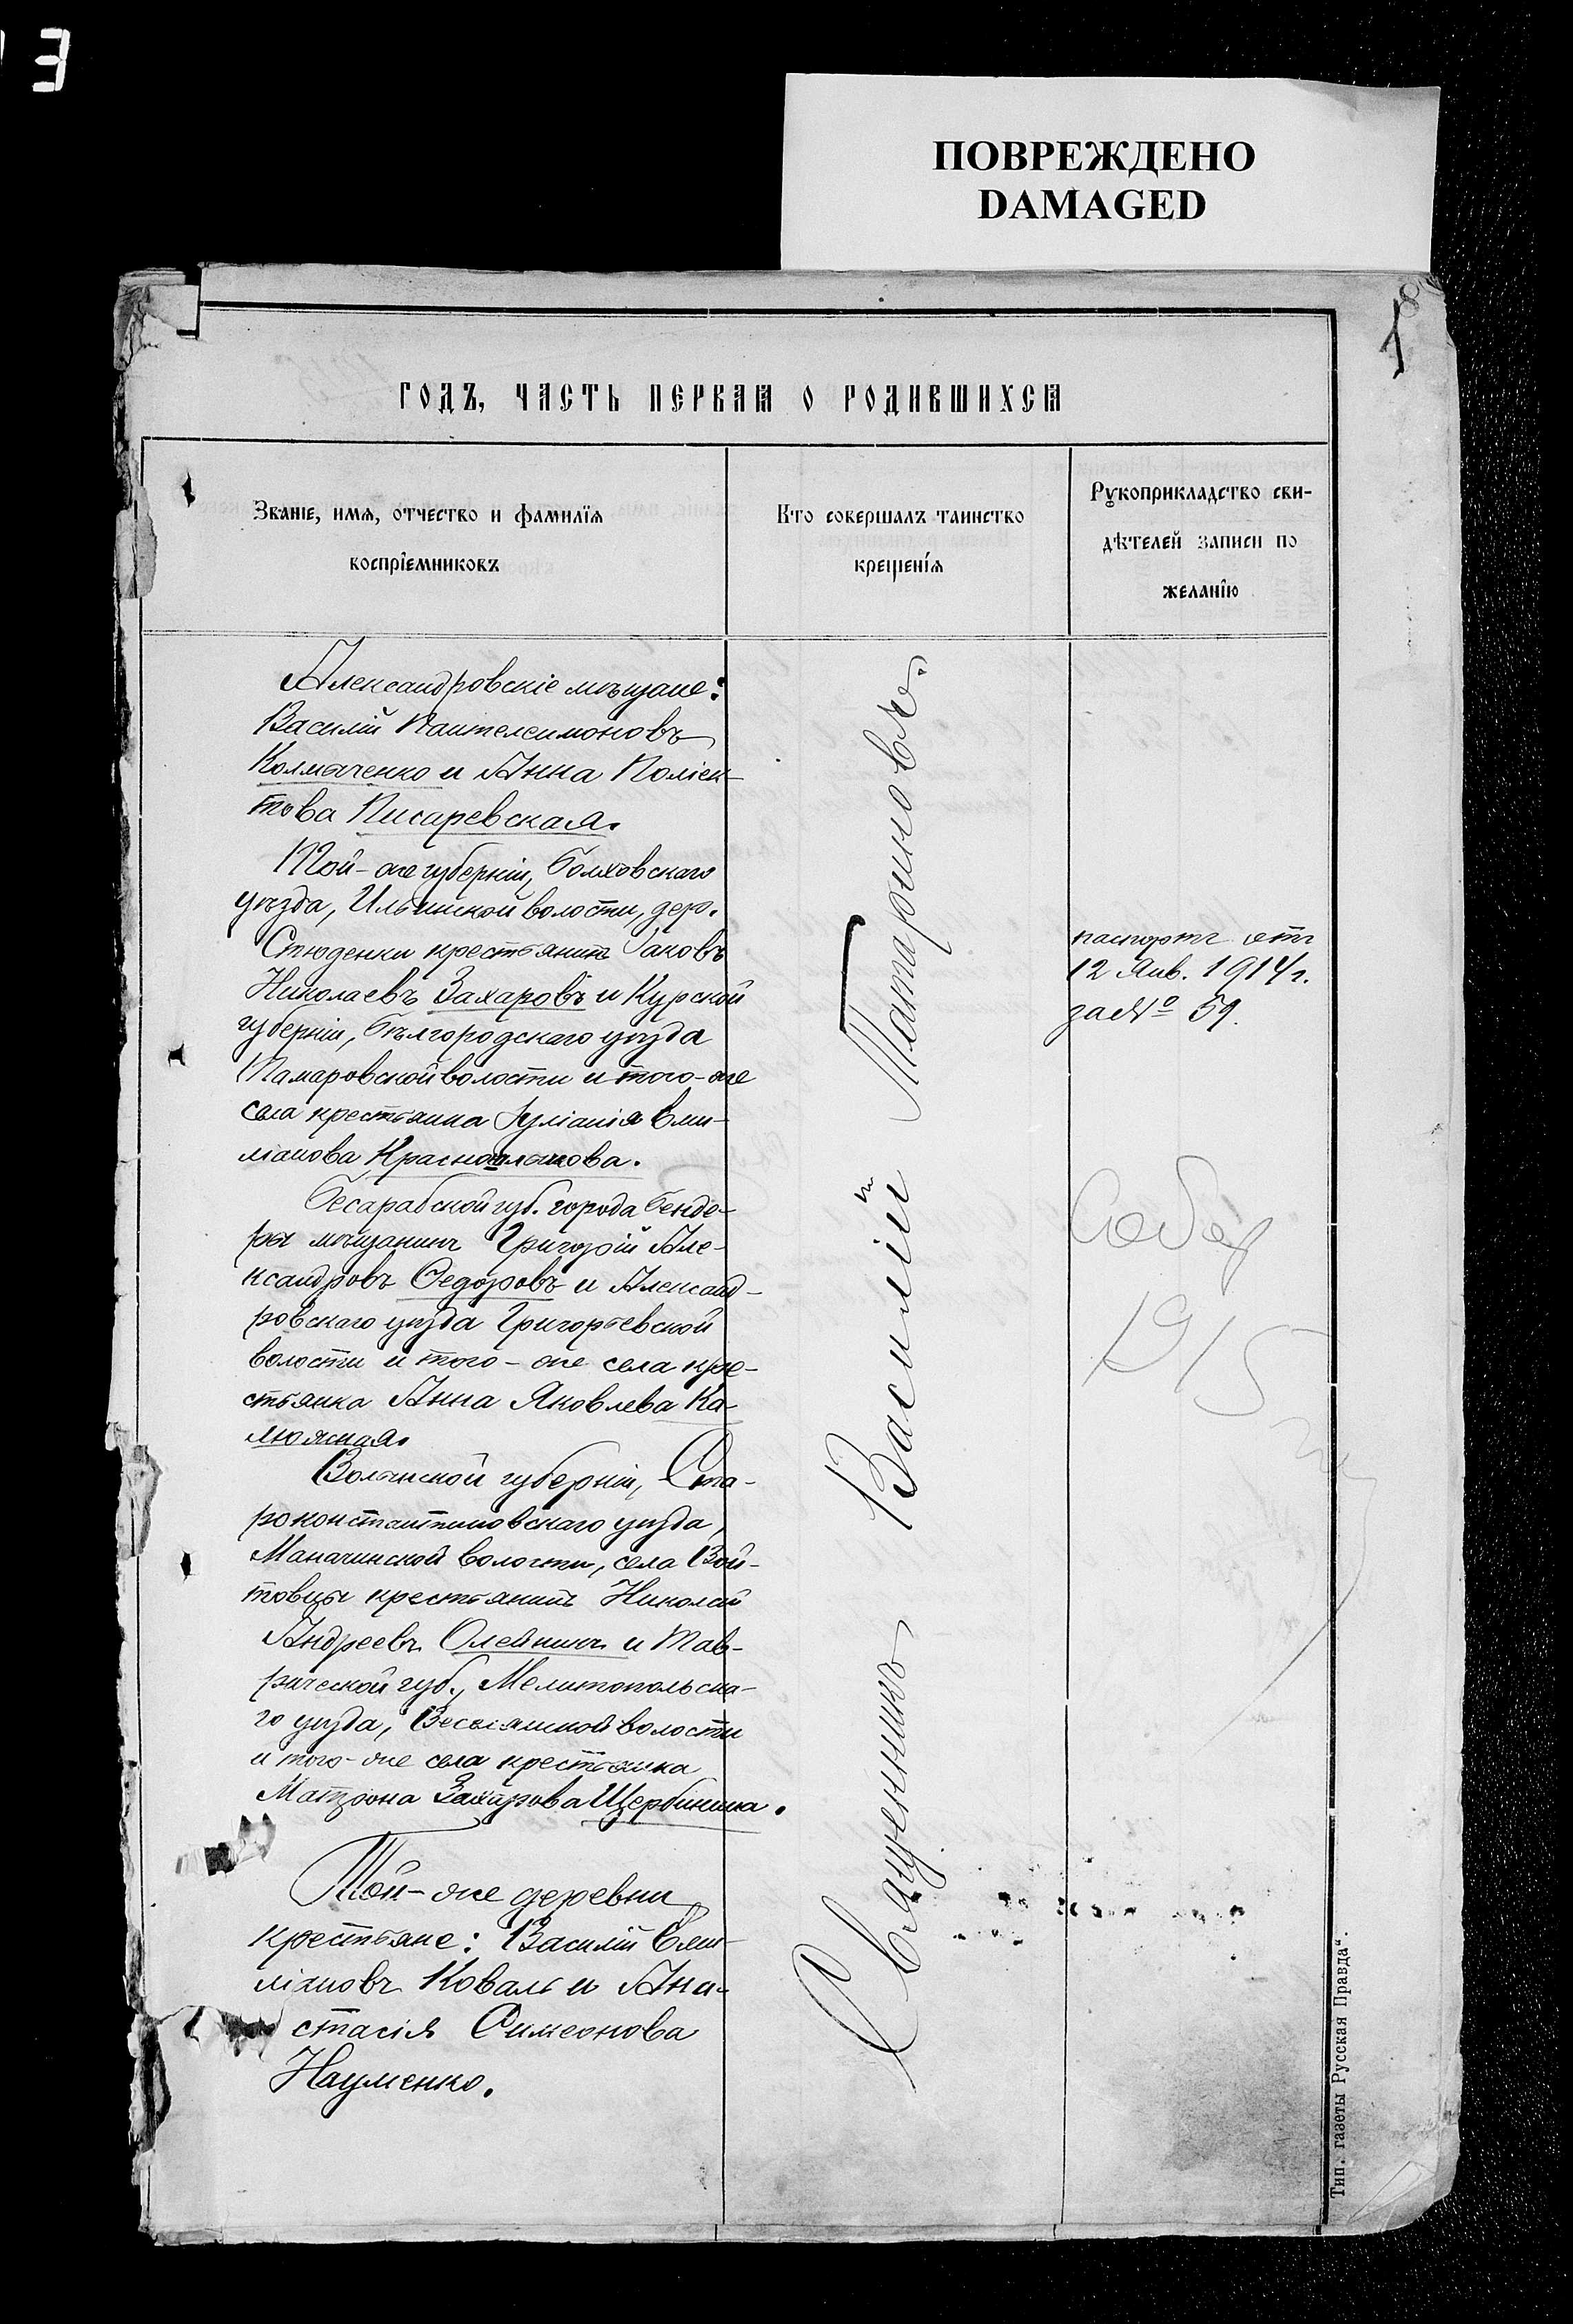 ПОВРЕЖДЕНО
DAMAGED
годъ, часть первая о родившихся
Званіе, имя, отчество и фамилія
воспріемниковъ
Кто совершалъ таинство
крещенія
Рукоприкладство сви-
дѣтелей записи по
желанію
Александровскіе мѣщане:
Василій Пантелеимоновъ
Колмаченко и Анна Поліек-
това Писаревская.
Той-же губерніи, Болховскаго
уѣзда, Ильинской волости, дер.
Студенки крестьянинъ Іаковъ
Николаевъ Захаровъ и Курской
губерніи, Бѣлгородскаго уѣзда
Тамаровской волости и того-же
села крестьянка Іуліанія Еми-
ліанова
Бесарабской губ. города Бенде-
ры мѣщанинъ Григорій Але-
ксандровъ Ѳедоровъ и Александ-
ровскаго уѣзда Григорьевской
волости и того-же села кре-
стьянка Анна Яковлева Ка-
люжная.
Волынской губерніи, Ста-
роконстантиновскаго уѣзда,
Маначинской волости, села Вой-
товцы крестьянинъ Николай
Андреевъ Олейникъ и Тав-
рической губ., Мелитопольска-
го уѣзда, Веселянской волости
и того-же села крестьянка
Матрона Захарова Щербинина.
Той-же деревни
крестьяне: Василій Еми-
ліановъ Коваль и Ана-
стасія Симеонова
Науменко.
Священникъ Василій Татариновъ.
паспортъ отъ
12 Янв. 1914 г.
за № 59.
1915
Тип. газеты Русская Правда“.